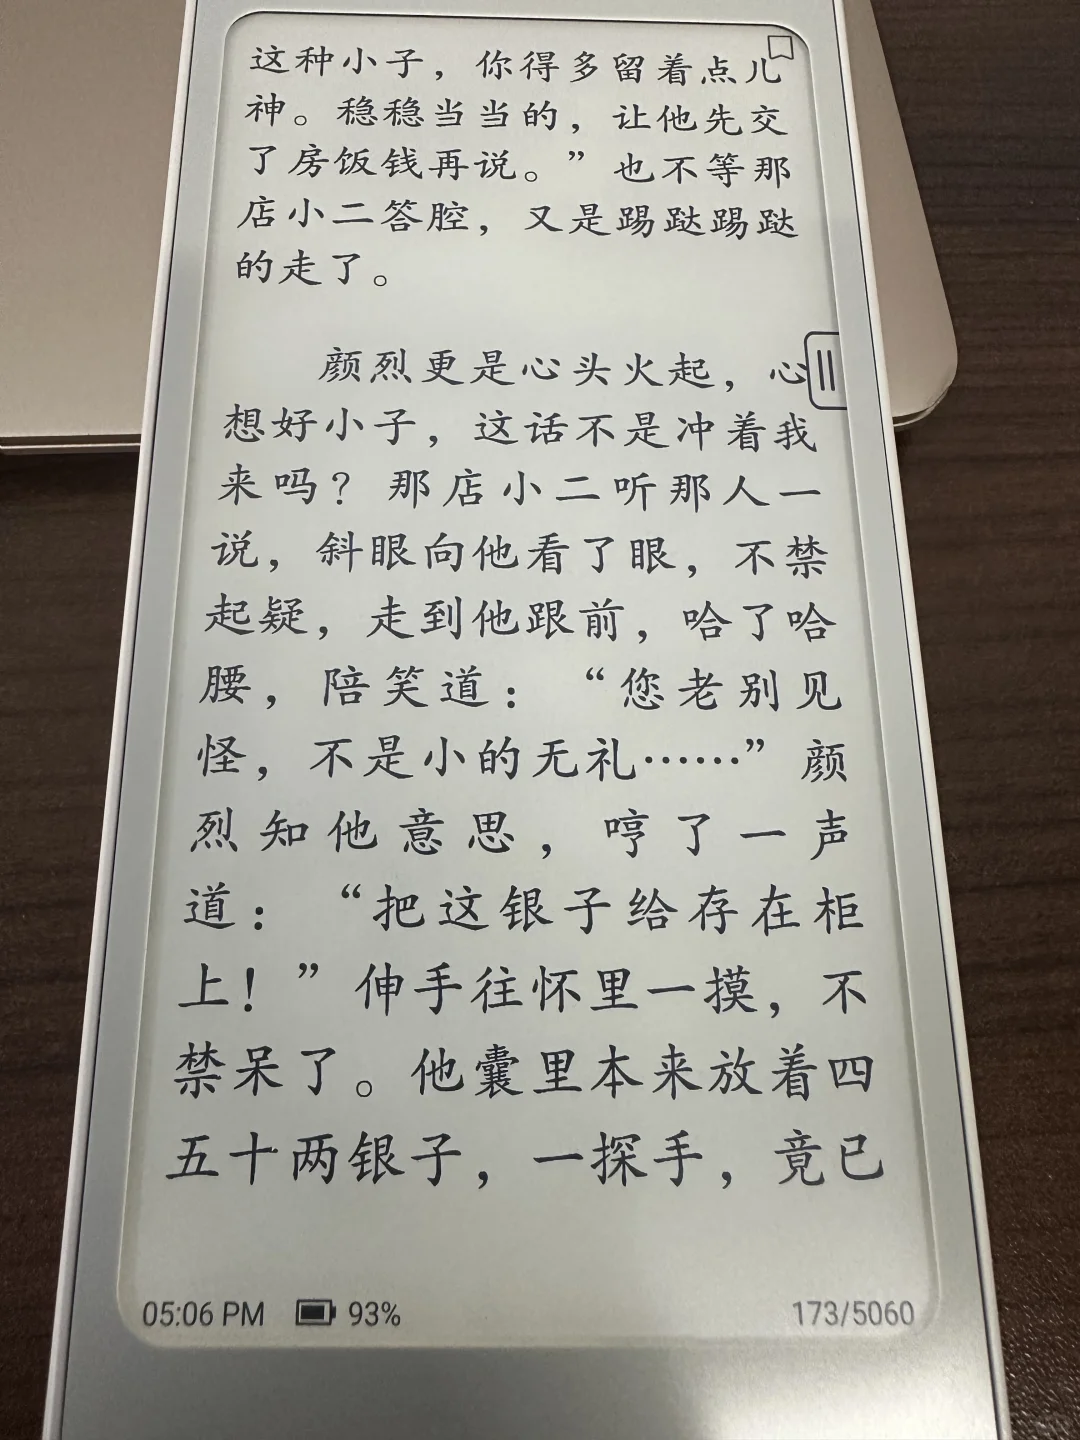 这种小子，你得多留着点儿
神。稳稳当当的，让他先交
了房饭钱再说。”也不等那
店小二答腔，又是踢跶踢跶
的走了。
颜烈更是心头火起，心
想好小子，这话不是冲着我
来吗？那店小二听那人一
说，斜眼向他看了眼，不禁
起疑，走到他跟前，哈了哈
腰，陪笑道：“您老别见
怪，不是小的无礼……”颜
烈知他意思，哼了一声
道：“把这银子给存在柜
上！”伸手往怀里一摸，不
禁呆了。他囊里本来放着四
五十两银子，一探手，竟已
05:06 PM 93% 173/5060